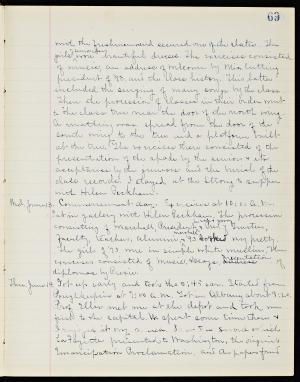 63
with the Freshmen and secured one of the seats. The
girls wore beautiful dresses. The exercises consisted
of music, an address of welcome by Miss
president of '93, and the class history. This latter
included the singing of many songs by the class.
Then the procession of classes in their order went
to the class tree near the door of the north wing.
A matting was spread from the door of the
south wing to the tree and a platform built
at the tree. The exercises there consisted of the
presentation of the spade by the senior & its
acceptance by the juniors and the burial of the
class records. I stayed at the Strong's supper
with Helen Peckham.
Wed. June 13. Commencement day. Exercises at 10:00 A.M.
Sat in gallery with Helen Peckham. The procession
consisting of Marshall, President, and
Faculty, Teachers, Alumnae, '93 very pretty.
The girls of '93 were in simple white muslins. The
exercises consisted of music, essays, Presentation of
diplomas
Thurs. June 14. Got up early and took the 5:45 car. Started from
Poughkeepsie at 7:00 A.M. Got in Albany about 9:20.
met me at the depot and took me
first to the capitol. We spent some time there &
Saw a sword which
Lafayette presented to Washington, the original
Emancipation Proclamation, and a paper found